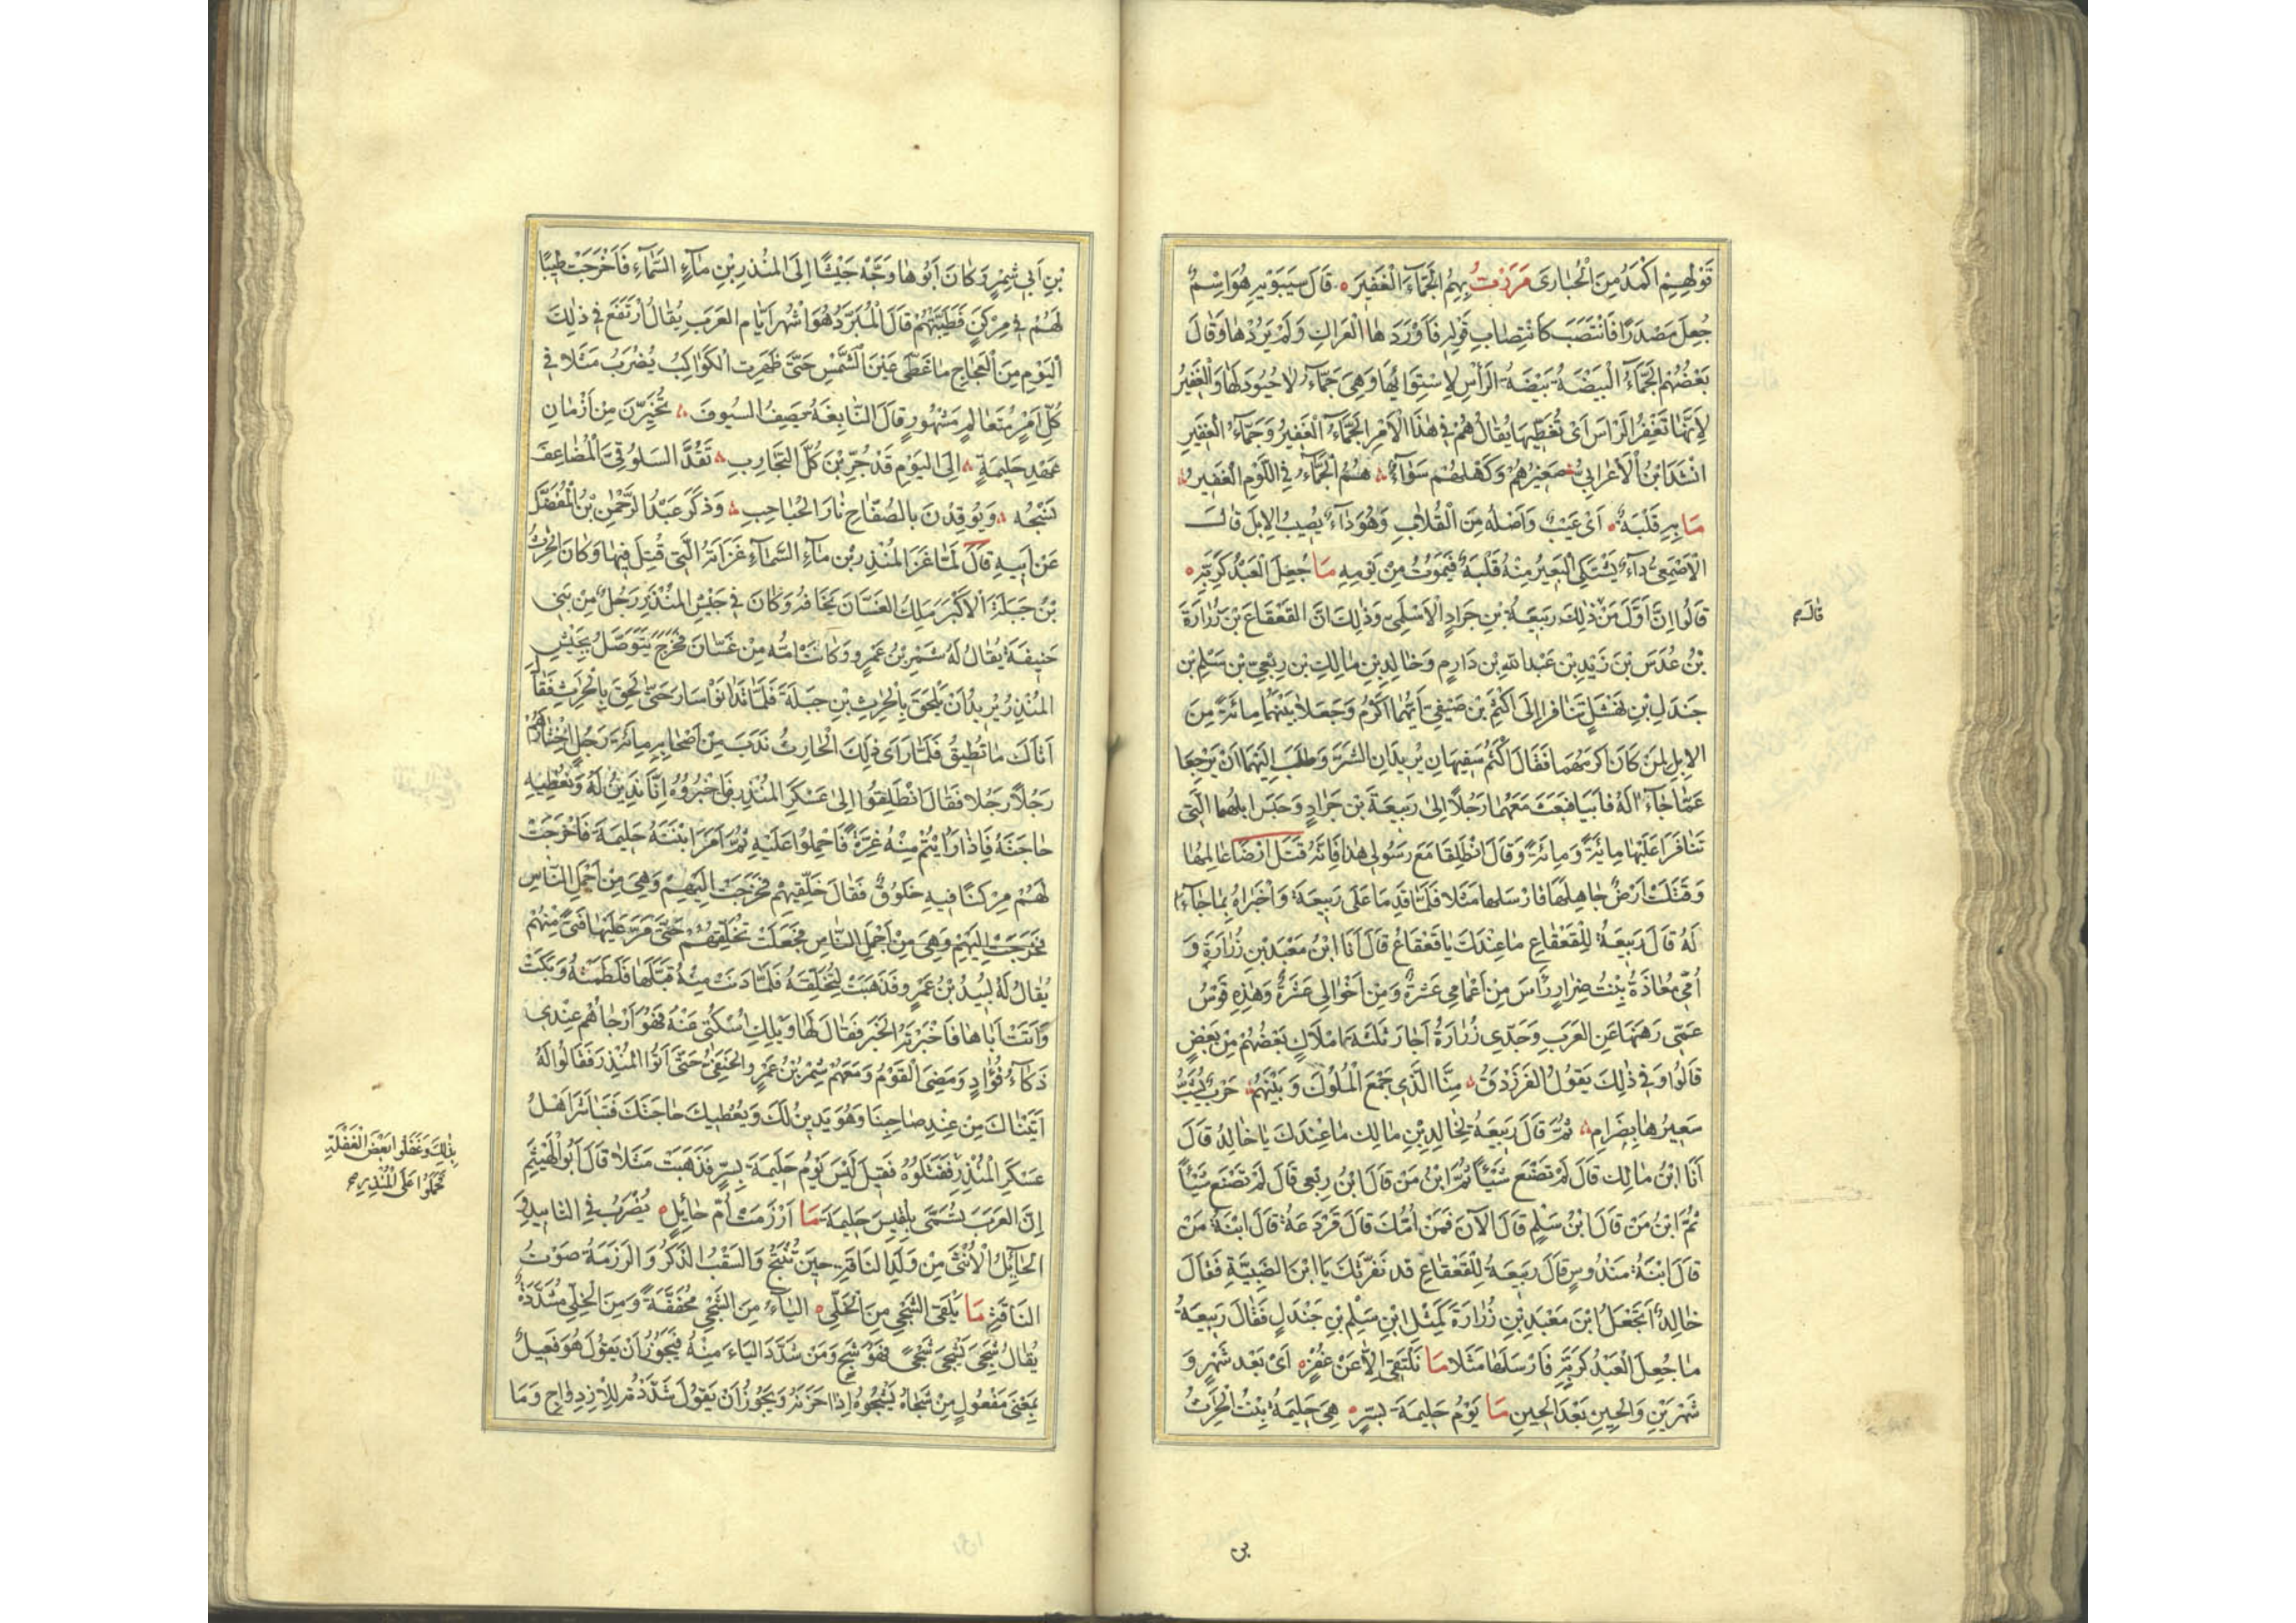 قَوْلِهِمْ اَكْمَدُ مِنَ الْحُبَارَى مَرَرْتُ بِهِمُ الْجَمَّآءَ الْغَفِيْرَ ه قَالَ سِيبَوَيْهِ هُوَ اِسْمٌ
جُعِلَ مَصْدَرًا فَانْتَصَبَ كَانْتِصَابِ قَوْلِهِ فَاَوْرَدَهَا الْعَرَاكِ وَلَمْ يَرُدْهَا وَقَالَ
بَعْضُهُمْ الْجَمَّآءُ الْبَيْضَةُ بَيْضَةُ الرَّأْسِ لِاسْتِوَائِهَا وَهِيَ جَمَّآءُ لَا حُيُودَ لَهَا وَالْغَفِيْرُ
لِاَنَّهَا تَغْفِرُ الرَّاسَ اَىْ تُغَطِّيْهَا يُقَالُ هُمْ فِى هٰذَا الْاَمْرِ الْجَمَّآءُ الْغَفِيْرُ وَجَمَّآءُ الْغَفِيْرِ
اَنْشَدَ ابْنُ الْاَعْرَابِيّ صَغِيْرُهُمْ وَكَهْلُهُمْ سَوَآءٌ هُمُ الْجَمَّآءُ فِى اللُّوْمِ الْغَفِيْرُ
مَا بِهِ قَلَبَةٌ ه اَىْ عَيْبٌ وَاَصْلُهُ مِنَ الْقُلَابِ وَهُوَ دَآءٌ يُصِيبُ الْاِبِلَ قَالَ
الْاَصْمَعِىُّ دَآءٌ يَشْتَكِى الْبَعِيْرُ مِنْهُ قَلْبَهُ فَيَمُوْتُ مِنْ يَوْمِهِ مَا جُعِلَ الْعَبْدُ كَرَبِّهِ ه
قَالُوا اِنَّ اَوَّلَ مَنْ ذٰلِكَ رَبِيْعَةُ بْنِ جَرَادٍ الْاَسْلَمِىّ وَذٰلِكَ اَنَّ الْقَعْقَاعَ بْنَ زُرَارَةَ
قَالَ صح
بْنُ عُدَسَ بْنَ زَيْدِ بْنِ عَبْدِ اللهِ بْنِ دَارِمٍ وَخَالِدِ بْنِ مَالِكِ بْنِ رِبْعِىّ بْنِ سَلْمِ بْنِ
جَنْدَلِ بْنِ نَهْشَلٍ تَنَافَرَا اِلَى اَكْثَمِ بْنِ صَيْفِىّ اَيُّهُمَا اَكْرَمُ وَجَعَلَا بَيْنَهُمَا مِائَةً مِنَ
الْاِبِلِ لِمَنْ كَانَ اَكْرَمَهُمَا فَقَالَ اَكْثَمُ سَفِيْهَانِ يُرِيْدَانِ الشَّرَّ وَطَلَبَ اِلَيْهِمَا اَنْ يَرْجِعَا
عَمَّا جَآءَا لَهُ فَاَبَيَا فَبَعَثَ مَعَهُمَا رَجُلًا اِلٰى رَبِيْعَةَ بْنِ جَرَادٍ وَحَبَسَ اِبِلَهُمَا الَّتِى
تَنَافَرَا عَلَيْهَا مِائَةً وَمِائَةً وَقَالَ انْطَلِقَا مَعَ رَسُوْلِى هٰذَا فَاِنَّهُ قَتَلَ اَرْضًا عَالِمُهَا
وَقَتَلَتْ اَرْضٌ جَاهِلَهَا فَاَرْسَلَهَا مَثَلًا فَلَمَّا قَدِمَا عَلَى رَبِيْعَةَ وَاَخْبَرَاهُ بِمَا جَآءَا
لَهُ قَالَ رَبِيْعَةُ لِلْقَعْقَاعِ مَا عِنْدَكَ يَا قَعْقَاعُ قَالَ اَنَا ابْنُ مَعْبَدِ بْنِ زُرَارَةٍ وَ
اُمِّى مُعَاذَةُ بِنْتُ ضِرَارٍ رَأَسَ مِنْ اَعْمَامِى عَشَرَةٌ وَمِنْ اَخْوَالِى عَشَرَةٌ وَهٰذِهِ قَوْسُ
عَمِّى رَهَنَهَا عَنِ الْعَرَبِ وَجَدِّى زُرَارَةُ اَجَارَ ثَلٰثَةَ اَمْلَاكٍ بَعْضُهُمْ مِنْ بَعْضٍ
قَالُوا وَفِى ذٰلِكَ يَقُوْلُ الْفَرَزْدَقُ مِنَّا الَّذِى جَمَعَ الْمُلُوْكَ وَبَيْنَهُمْ حَرْبٌ يُشَبُّ
سَعِيْرُهَا بِضِرَامِ ثُمَّ قَالَ رَبِيْعَةُ لِخَالِدِ بْنِ مَالِكٍ مَا عِنْدَكَ يَا خَالِدُ قَالَ
اَنَا ابْنُ مَالِكٍ قَالَ لَمْ تَصْنَعْ شَيْئًا ثُمَّ ابْنُ مَنْ قَالَ ابْنُ رِبْعِى قَالَ لَمْ تَصْنَعْ شَيْئًا
ثُمَّ ابْنُ مَنْ قَالَ ابْنُ سَلْمٍ قَالَ الْآنَ فَمَنْ اُمُّكَ قَالَ فَرْدَعَةُ قَالَ ابْنَةُ مَنْ
قَالَ ابْنَةُ مَنْدُوسٍ قَالَ رَبِيْعَةُ لِلْقَعْقَاعِ قَدْ نَفَّرْتُكَ يَا ابْنَ الضَّبِيَّةِ فَقَالَ
خَالِدٌ اَتَجْعَلُ ابْنَ مَعْبَدِ بْنِ زُرَارَةَ كَمِثْلِ ابْنِ سَلْمِ بْنِ جَنْدَلٍ فَقَالَ رَبِيْعَةُ
مَا جُعِلَ الْعَبْدُ كَرَبِّهِ فَاَرْسَلَهَا مَثَلًا مَا نَلْتَقِى اِلَّا عَنْ عُفْرٍ ه اَىْ بَعْدَ شَهْرٍ وَ
شَهْرَيْنِ وَالْحِيْنِ بَعْدَ الْحِيْنِ مَا يَوْمُ حَلِيْمَةَ بِسِرٍّ ه هِىَ حَلِيْمَةُ بِنْتُ الْحٰرِثِ
بن
بْنِ اَبِى شِمْرٍ وَكَانَ اَبُوْهَا وَجَّهَ جَيْشًا اِلَى الْمُنْذِرِ بْنِ مَآءِ السَّمَآءِ فَاَخْرَجَتْ طِيْبًا
لَهُمْ فِى مِرْكَنٍ فَطَيَّبَتْهُمْ قَالَ الْمُبَرَّدُ هُوَ اَشْهَرُ اَيَّامِ الْعَرَبِ يُقَالُ ارْتَفَعَ فِى ذٰلِكَ
الْيَوْمِ مِنَ الْعَجَاجِ مَا غَطَّى عَيْنَ الشَّمْسِ حَتّٰى ظَهَرَتِ الْكَوَاكِبُ يُضْرَبُ مَثَلًا فِى
كُلِّ اَمْرٍ مُتَعَالَمٍ مَشْهُوْرٍ قَالَ النَّابِغَةُ يَصِفُ السُّيُوفَ تُخُيِّرْنَ مِنْ اَزْمَانِ
عَهْدِ حَلِيْمَةٍ اِلَى الْيَوْمِ قَدْ جُرِّبْنَ كُلَّ التَّجَارِبِ تَقُدُّ السَّلُوْقِىَّ الْمُضَاعَفَ
نَسْجُهُ وَيُوْقِدْنَ بِالصُّفَّاحِ نَارَ الْحُبَاحِبِ وَذَكَرَ عَبْدُ الرَّحْمٰنِ بْنُ الْمُفَضَّلِ
عَنْ اَبِيْهِ قَالَ لَمَّا غَزَا الْمُنْذِرُ بْنُ مَآءِ السَّمَآءِ غَزَاتَهُ الَّتِى قُتِلَ فِيْهَا وَكَانَ الْحٰرِثُ
بْنُ جَبَلَةَ الْاَكْبَرُ مَلِكُ الْغَسَّانَ يَخَافُهُ وَكَانَ فِى جَيْشِ الْمُنْذِرِ رَجُلٌ مِنْ بَنِى
حَنِيْفَةَ يُقَالُ لَهُ شَمِرُ بْنُ عَمْرٍو وَكَانَتْ اُمُّهُ مِنْ غَسَّانَ فَخَرَجَ يَتَوَصَّلُ بِجَيْشِ
الْمُنْذِرِ يُرِيْدُ اَنْ يَلْحَقَ بِالْحٰرِثِ بْنِ جَبَلَةَ فَلَمَّا تَدَانَوْا سَارَ حَتّٰى لَحِقَ بِالْحٰرِثِ فَقَالَ
اَتَاكَ مَا تُطِيْقُ فَلَمَّا رَاَى ذٰلِكَ الْحَارِثُ نَدَبَ مِنْ اَصْحَابِهِ مِائَةَ رَجُلٍ اخْتَارَهُمْ
رَجُلًا رَجُلًا فَقَالَ انْطَلِقُوا اِلٰى عَسْكَرِ الْمُنْذِرِ فَاَخْبِرُوْهُ اِنَّا نَدِيْنُ لَهُ وَنُعْطِيْهِ
حَاجَتَهُ فَاِذَا رَاَيْتُمْ مِنْهُ غِرَّةً فَاحْمِلُوا عَلَيْهِ ثُمَّ اَمَرَ ابْنَتَهُ حَلِيْمَةَ فَاَخْرَجَتْ
لَهُمْ مِرْكَنًا فِيْهِ خَلُوقٌ فَقَالَ خَلِّقِيْهِمْ فَخَرَجَتْ اِلَيْهِمْ وَهِىَ مِنْ اَجْمَلِ النَّاسِ
فَخَرَجَتْ اِلَيْهِمْ وَهِىَ مِنْ اَجْمَلِ النَّاسِ فَجَعَلَتْ تُخَلِّقُهُمْ حَتّٰى مَرَّ عَلَيْهَا فَتًى مِنْهُمْ
يُقَالُ لَهُ لَبِيْدُ بْنُ عَمْرٍو فَذَهَبَتْ لِتُخَلِّقَهُ فَلَمَّا دَنَتْ مِنْهُ قَبَّلَهَا فَلَطَمَتْهُ وَبَكَتْ
وَاَتَتْ اَبَاهَا فَاَخْبَرَتْهُ الْخَبَرَ فَقَالَ لَهَا وَيْلَكِ اسْكُتِى عَنْهُ فَهُوَ اَرْجَاهُمْ عِنْدِى
ذَكَآءَ فُؤَادٍ وَمَضَى الْقَوْمُ وَمَعَهُمْ شِمْرُ بْنُ عَمْرٍو الْحَنَفِىُّ حَتّٰى اَتَوُا الْمُنْذِرَ فَقَالُوا لَهُ
اَتَيْنَاكَ مِنْ عِنْدِ صَاحِبِنَا وَهُوَ يَدِيْنُ لَكَ وَيُعْطِيْكَ حَاجَتَكَ فَتَبَاشَرَ اَهْلُ
عَسْكَرِ الْمُنْذِرِ فَقَتَلُوْهُ فَقِيْلَ لَيْسَ يَوْمُ حَلِيْمَةَ بِسِرٍّ فَذَهَبَتْ مَثَلًا قَالَ اَبُو الْهَيْثَمِ
بِذٰلِكَ وَغَفَلُوا بَعْضَ الْغَفْلَةِ
فَحَمَلُوا عَلَى الْمُنْذِرِ صح
اِنَّ الْعَرَبَ تُسَمِّى بِلْقِيْسَ حَلِيْمَةَ مَا اَرْزَمَتْ اُمُّ حَائِلٍ ه يُضْرَبُ فِى التَّابِيْدِ
الْحَآئِلُ الْاُنْثَى مِنْ وَلَدِ النَّاقَةِ حِيْنَ تُنْتَجُ وَالسَّقْبُ الذَّكَرُ وَالرَّزَمَةُ صَوْتُ
النَّاقَةِ مَا يَلْقَى الشَّجِى مِنَ الْخَلِّى ه الْيَآءُ مِنَ الشَّجِى مُخَفَّفَةً وَمِنَ الْخَلِّى مُشَدَّدَةٌ
يُقَالُ شَجِىَ يَشْجَى شَجًى فَهُوَ شَجٍ وَمَنْ شَدَّدَ الْيَاءَ مِنْهُ فَيَجُوْزُ اَنْ يَقُوْلَ هُوَ فَعِيْلٌ
بِمَعْنَى مَفْعُولٍ مِنْ شَجَاهُ يَشْجُوْهُ اِذَا حَزَنَهُ وَيَجُوْزُ اَنْ يَقُوْلَ شَدَّدْتُهُ لِلْاِزْدِوَاجِ وَمَا